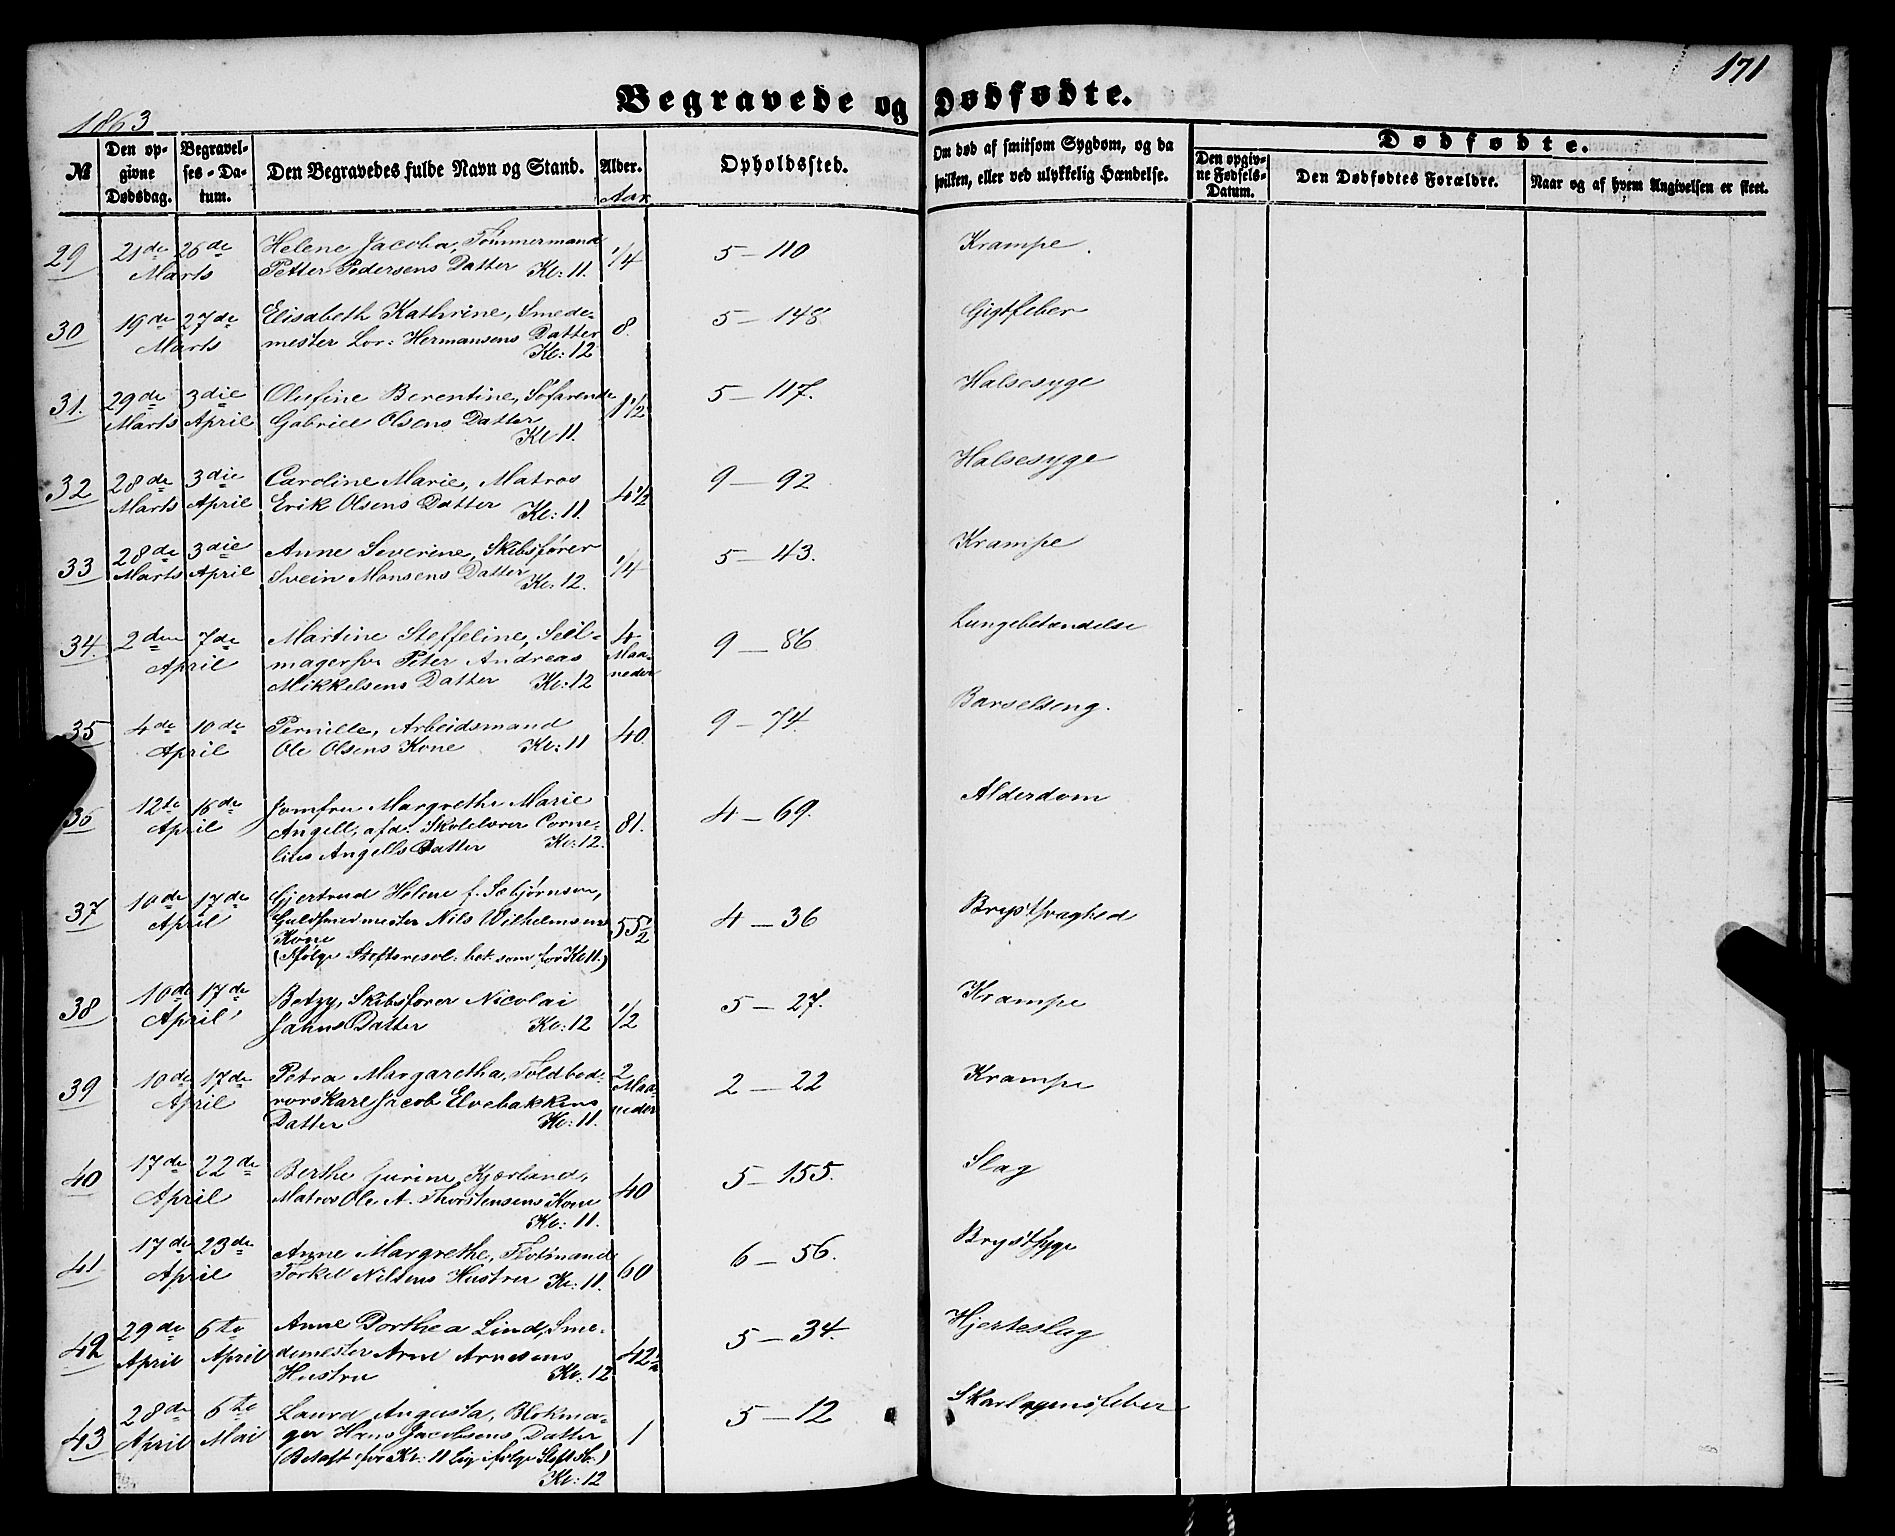 171
Begravede og Dødfødte.
1863
№
Den opgivne Dødsdag.
Begravelses-Datum.
Den Begravedes fulde Navn og Stand.
Alder.
Aar
Opholdssted.
Om død af smitsom Sygdom, og da hvilken, eller ved ulykkelig Hændelse.
Dødfødte.
Den opgivne Fødsels-Datum.
Den Dødfødtes Forældre.
Naar og af hvem Angivelsen er skeet.
29 21de 26de Helene Jacoba, Tømmermand 1/4 5 — 110 Krampe
Marts Petter Pedersens Datter Kl: 11.
30 19de 27de Elisabeth Kathrine, Smede- 8. 5 — 148. Gigtfeber
Marts mester Lor: Hermansens Datter
Kl: 12
31. 29de 3die Olufine Berentine, Søfarende 8 1/2 5 — 117. Halsesyge
Marts April Gabriel Olsens Datter
Kl 11.
32 28de 3die Caroline Marie, Matros 4 1/2 9 — 92 Halsesyge
Marts April Erik Olsens Datter Kl: 11.
33 28de 3die Anne Severine, Skibsfører 1/4 5 — 43. Krampe
Marts April Svein Monsens Datter Kl: 12.
34. 2den 7de Martine Steffeline, Seil- 4 Maaneder 9 — 86 Lungebetændelse
April magersv. Peter Andreas
Mikkelsens Datter Kl: 12
35 4de 10de Pernille, Arbeidsmand 40. 9 — 74. Barselseng.
April Ole Olsens Kone Kl: 11
36 12te 16de Jomfru Margrethe Marie 81. 4 — 69. Alderdom
April Angell, afd. Skolelærer Corne-
lius Angells Datter Kl: 12.
37 10de 17de Gjertrud Helene f. Sæbjørnsen, 55 1/2 4 — 36 Brystsvaghed
April Guldsmedmester Nils Wilhelmsens
Kone
(Ifølge Stiftsresol. bet. som for Kl 11.)
38 10de 17de Betzy, Skibsfører Nicolai 1/2 5 — 27. Krampe
April Jahns Datter Kl: 12
39 10de 17de Petra Margaretha, Toldbod- 2 Maaneder 2 — 22 Krampe
April rorskarl Jacob Elvebakkens
Datter Kl: 11.
40 17de 22de Berthe Gurine Kjærland, 40 5 — 155. Slag
April Matros Ole A. Thorstensens Kone
Kl: 11.
41 17de 23de Anne Margrethe, Flotmand 60 6 — 56. Brystsyge
April Torkel Nilsens Hustru Kl: 11.
42 29de 6te Anne Dorthea Lind, Sme- 42 1/2 5 — 34. Hjerteslag
April April demester Arne Arnesens
Hustru Kl: 12
43 28de 6te Laura Augusta, Blokma- 1 5 — 12 Skarlagensfeber
April Mai ger Hans Jacobsens Datter
(Betalt for Kl: 11 Lig ifølge Stift
Kl: 12